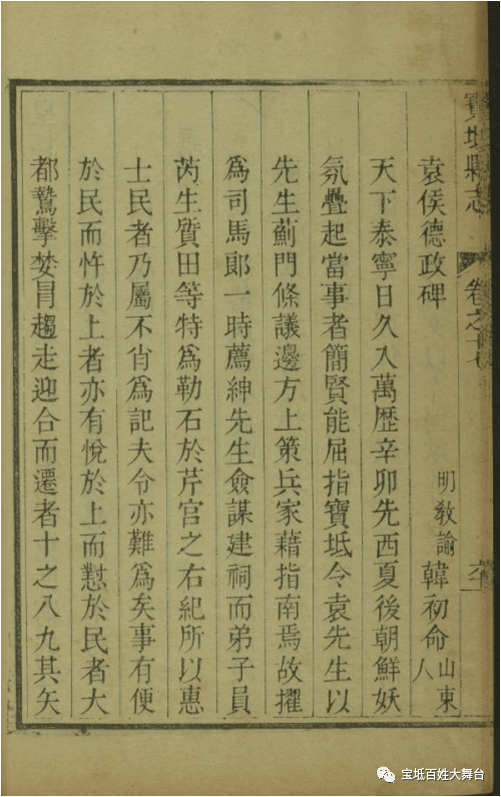 寶坻縣志 卷之十
袁侯德政碑 明教諭韓初命山東人
天下泰寧日久入萬歷辛卯先西夏後朝鮮妖
氛疊起當事者簡賢能屈指寶坻令袁先生以
先生薊門條議邊方上策兵家藉指南焉故擢
為司馬郎一時薦紳先生僉謀建祠而弟子員
芮生質田等特為勒石於芹宮之右紀所以惠
士民者乃屬不肖為記夫令亦難為矣事有便
於民而忤於上者亦有悅於上而懟於民者大
都鷙擊婪冒趨走迎合而遷者十之八九其矢
宝坻百姓大舞台